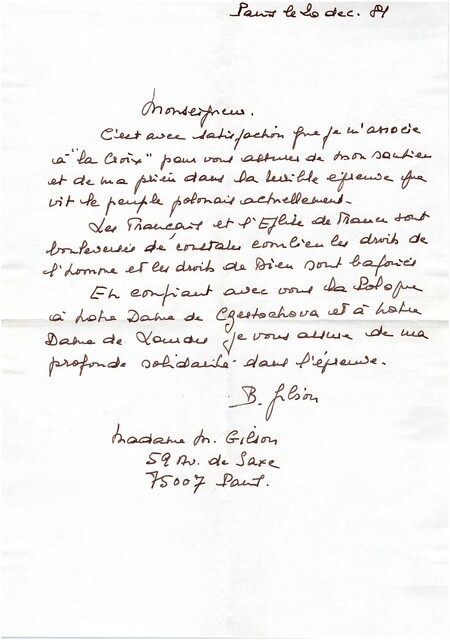 Paris le 20 dec. 81
Monseigneur.
C'est avec satisfaction que je m'associe
à "la Croix" pour vous assurer de mon soutien
et de ma prière dans la terrible épreuve que
vit le peuple polonais actuellement.
Les Français et l'Eglise de France sont
bouleversés de constater combien les droits de
l'homme et les droits de Dieu sont bafoués
En confiant avec vous la Pologne
à Notre Dame de Czestochova et à Notre
Dame de Lourdes je vous assure de ma
profonde solidarité dans l'épreuve.
B. Gilson
Madame M. Gilson
59 Av. de Saxe
75007 Paris.